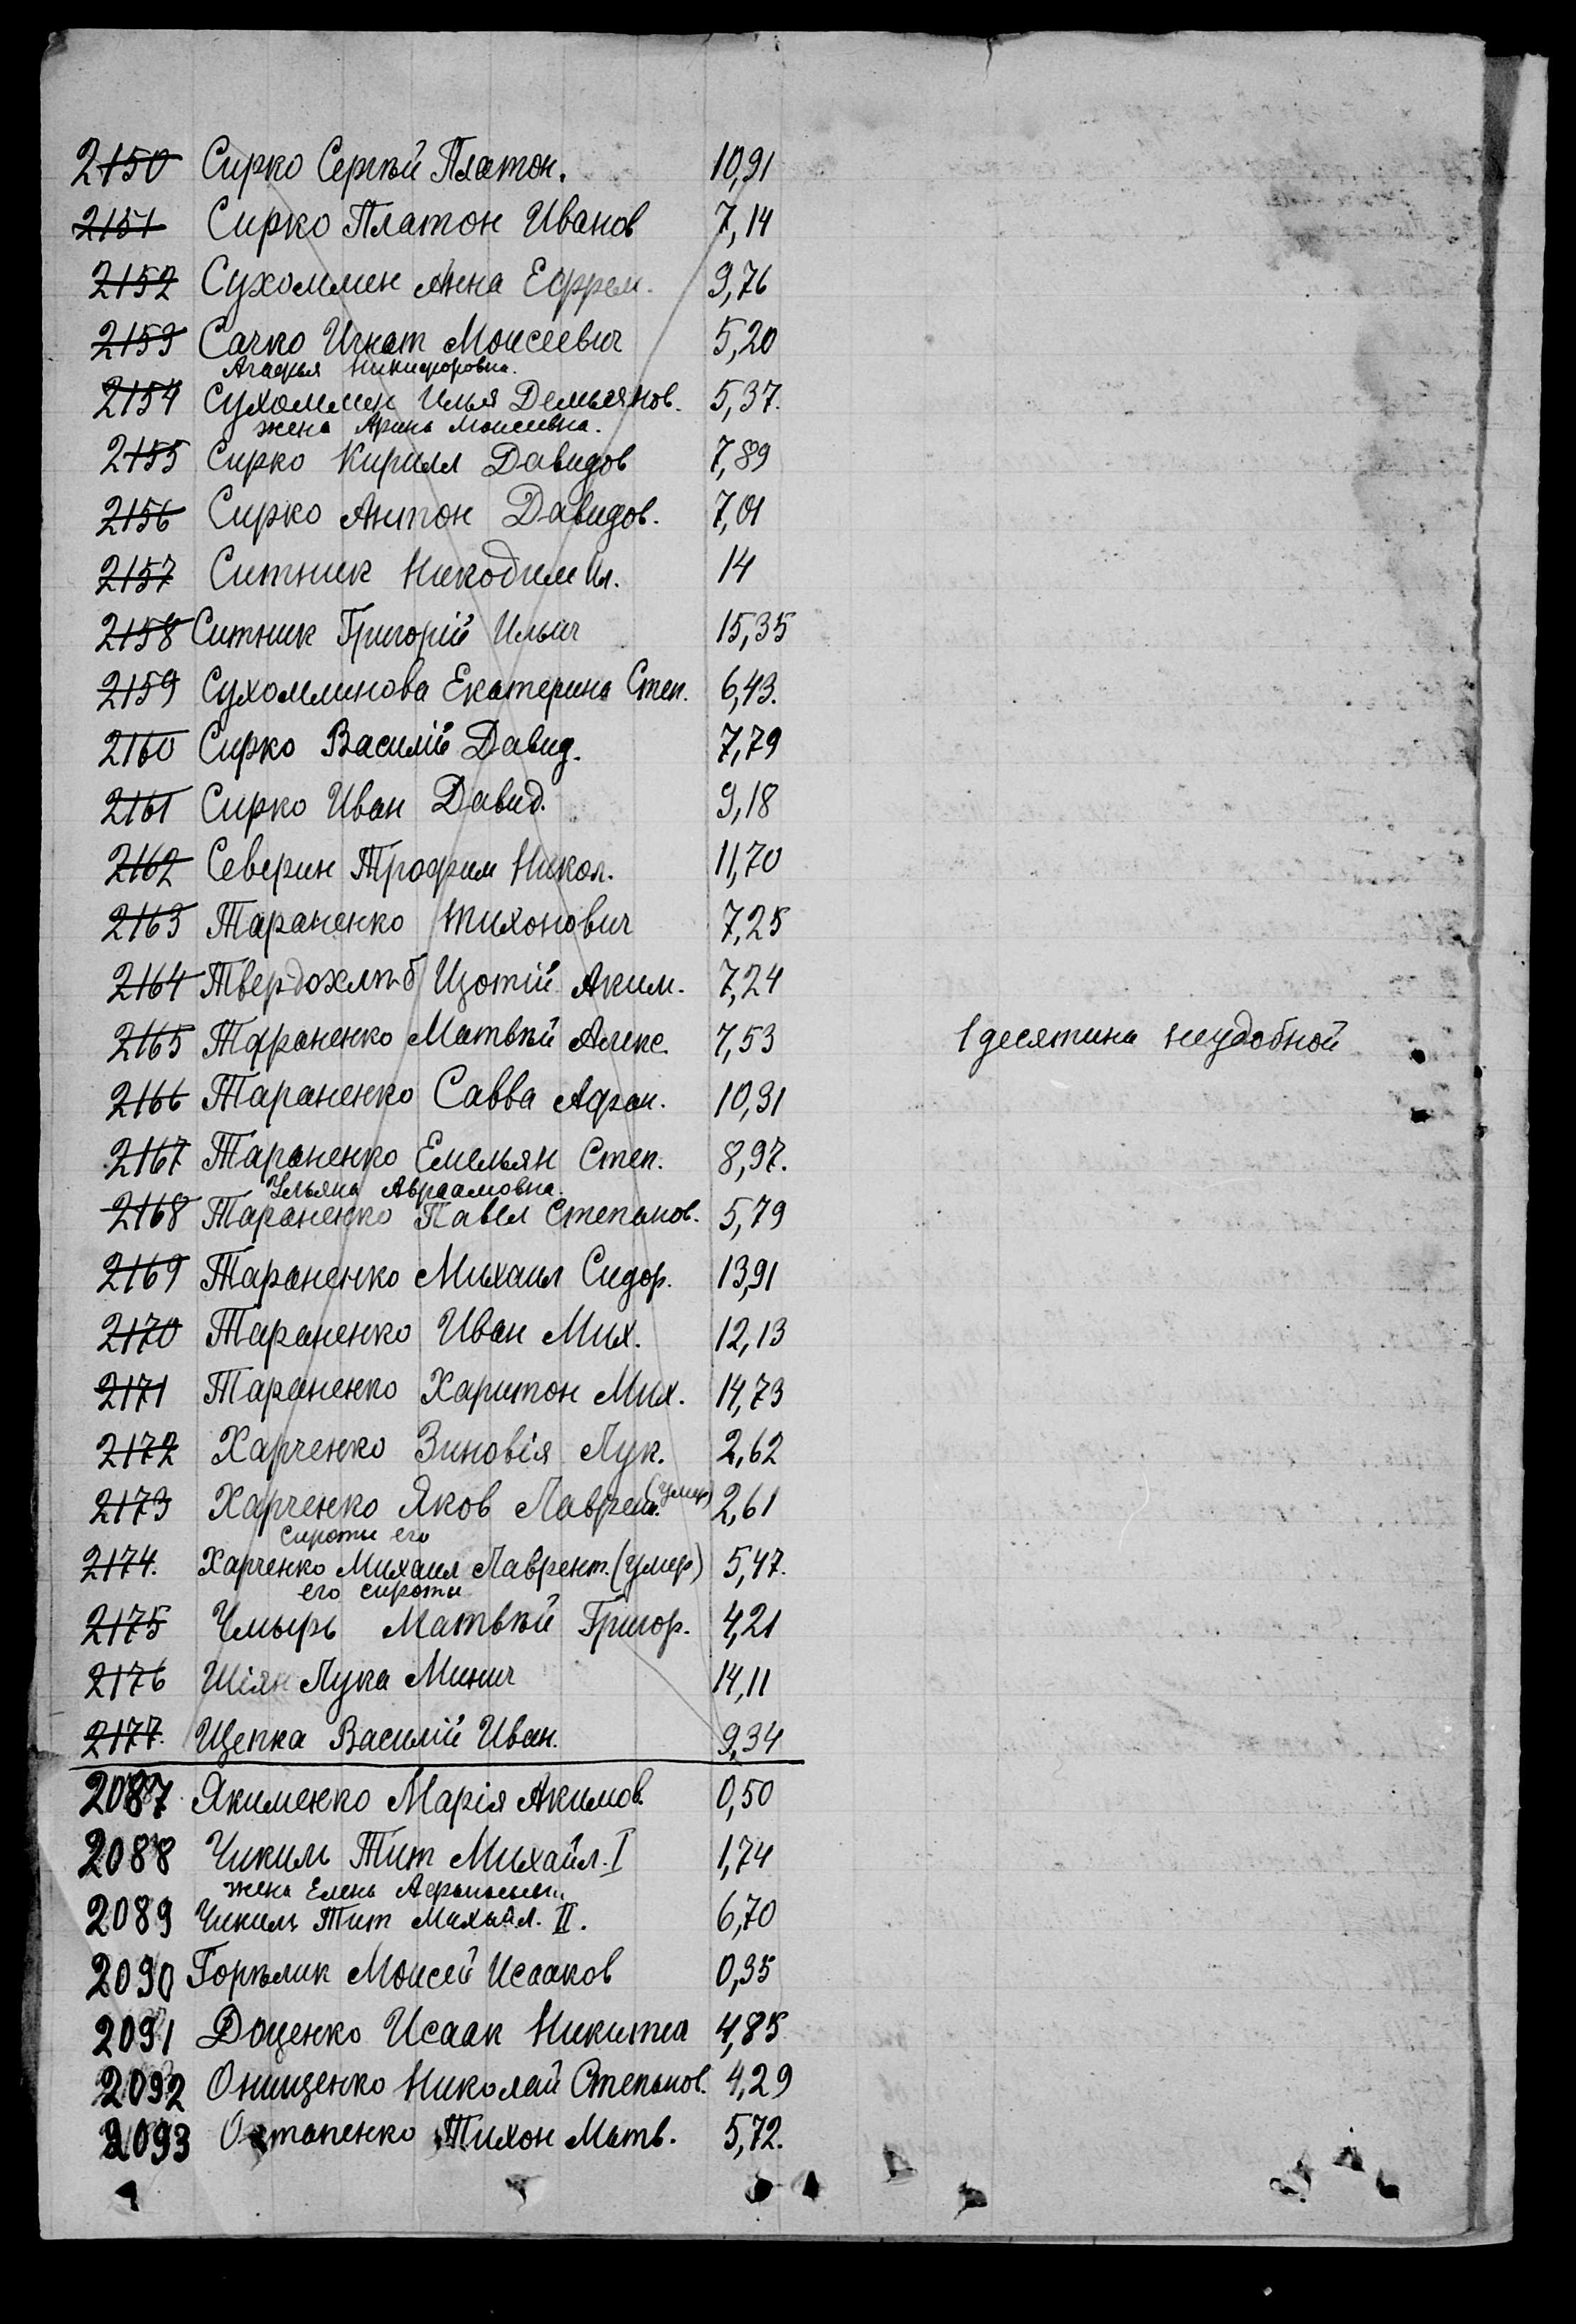 2150 Сирко Сергѣй Платон. 10,91
2151 Сирко Платон Иванов 7,14
2152 Сухомлин Анна Ефрем. 9,76
2153 Сачко Игнат Моисеевич 5,20
Агафья Никифоровна.
2154 Сухомлин Илья Демьянов. 5,37.
жена Арина Моисеевна.
2155 Сирко Кирилл Давидов 7,89
2156 Сирко Антон Давидов. 7,01
2157 Ситник Никодим Ил. 14
2158 Ситник Григорій Ильич 15,35
2159 Сухомлинова Екатерина Степ. 6,43.
2160 Сирко Василій Давид. 7,79
2161 Сирко Иван Давид. 9,18
2162 Северин Трофим Никол. 11,70
2163 Тараненко Тихонович 7,25
2164 Твердохлѣб Изотій Аким. 7,24
2165 Тараненко Матвѣй Алекс. 7,53 1 десятина неудобной
2166 Тараненко Савва Афан. 10,91
2167 Тараненко Емельян Степ. 8,97.
Ульяна Авраамовна.
2168 Тараненко Павел Степанов. 5,79
2169 Тараненко Михаил Сидор. 13,91
2170 Тараненко Иван Мих. 12,13
2171 Тараненко Харитон Мих. 14,73
2172 Харченко Зиновія Лук. 2,62
2173 Харченко Яков Лаврен. (умер) 2,61
сироты его
2174. Харченко Михаил Лаврент. (умер) 5,47.
его сироты
2175 Чмырь Матвѣй Григор. 4,21
2176 Шіян Лука Минич 14,11
2177. Щепка Василій Иван. 9,34
2087 Якименко Марія Акимов. 0,50
2088 Чикиль Тит Михайл. I 1,74
жена Елена
2089 Чикиль Тит Михайл. II. 6,70
2090 Горѣлик Моисей Исааков 0,35
2091 Доценко Исаак Никитич 4,85
2092 Онищенко Николай Степанов. 4,29
2093 Остапенко Тихон Матв. 5,72.